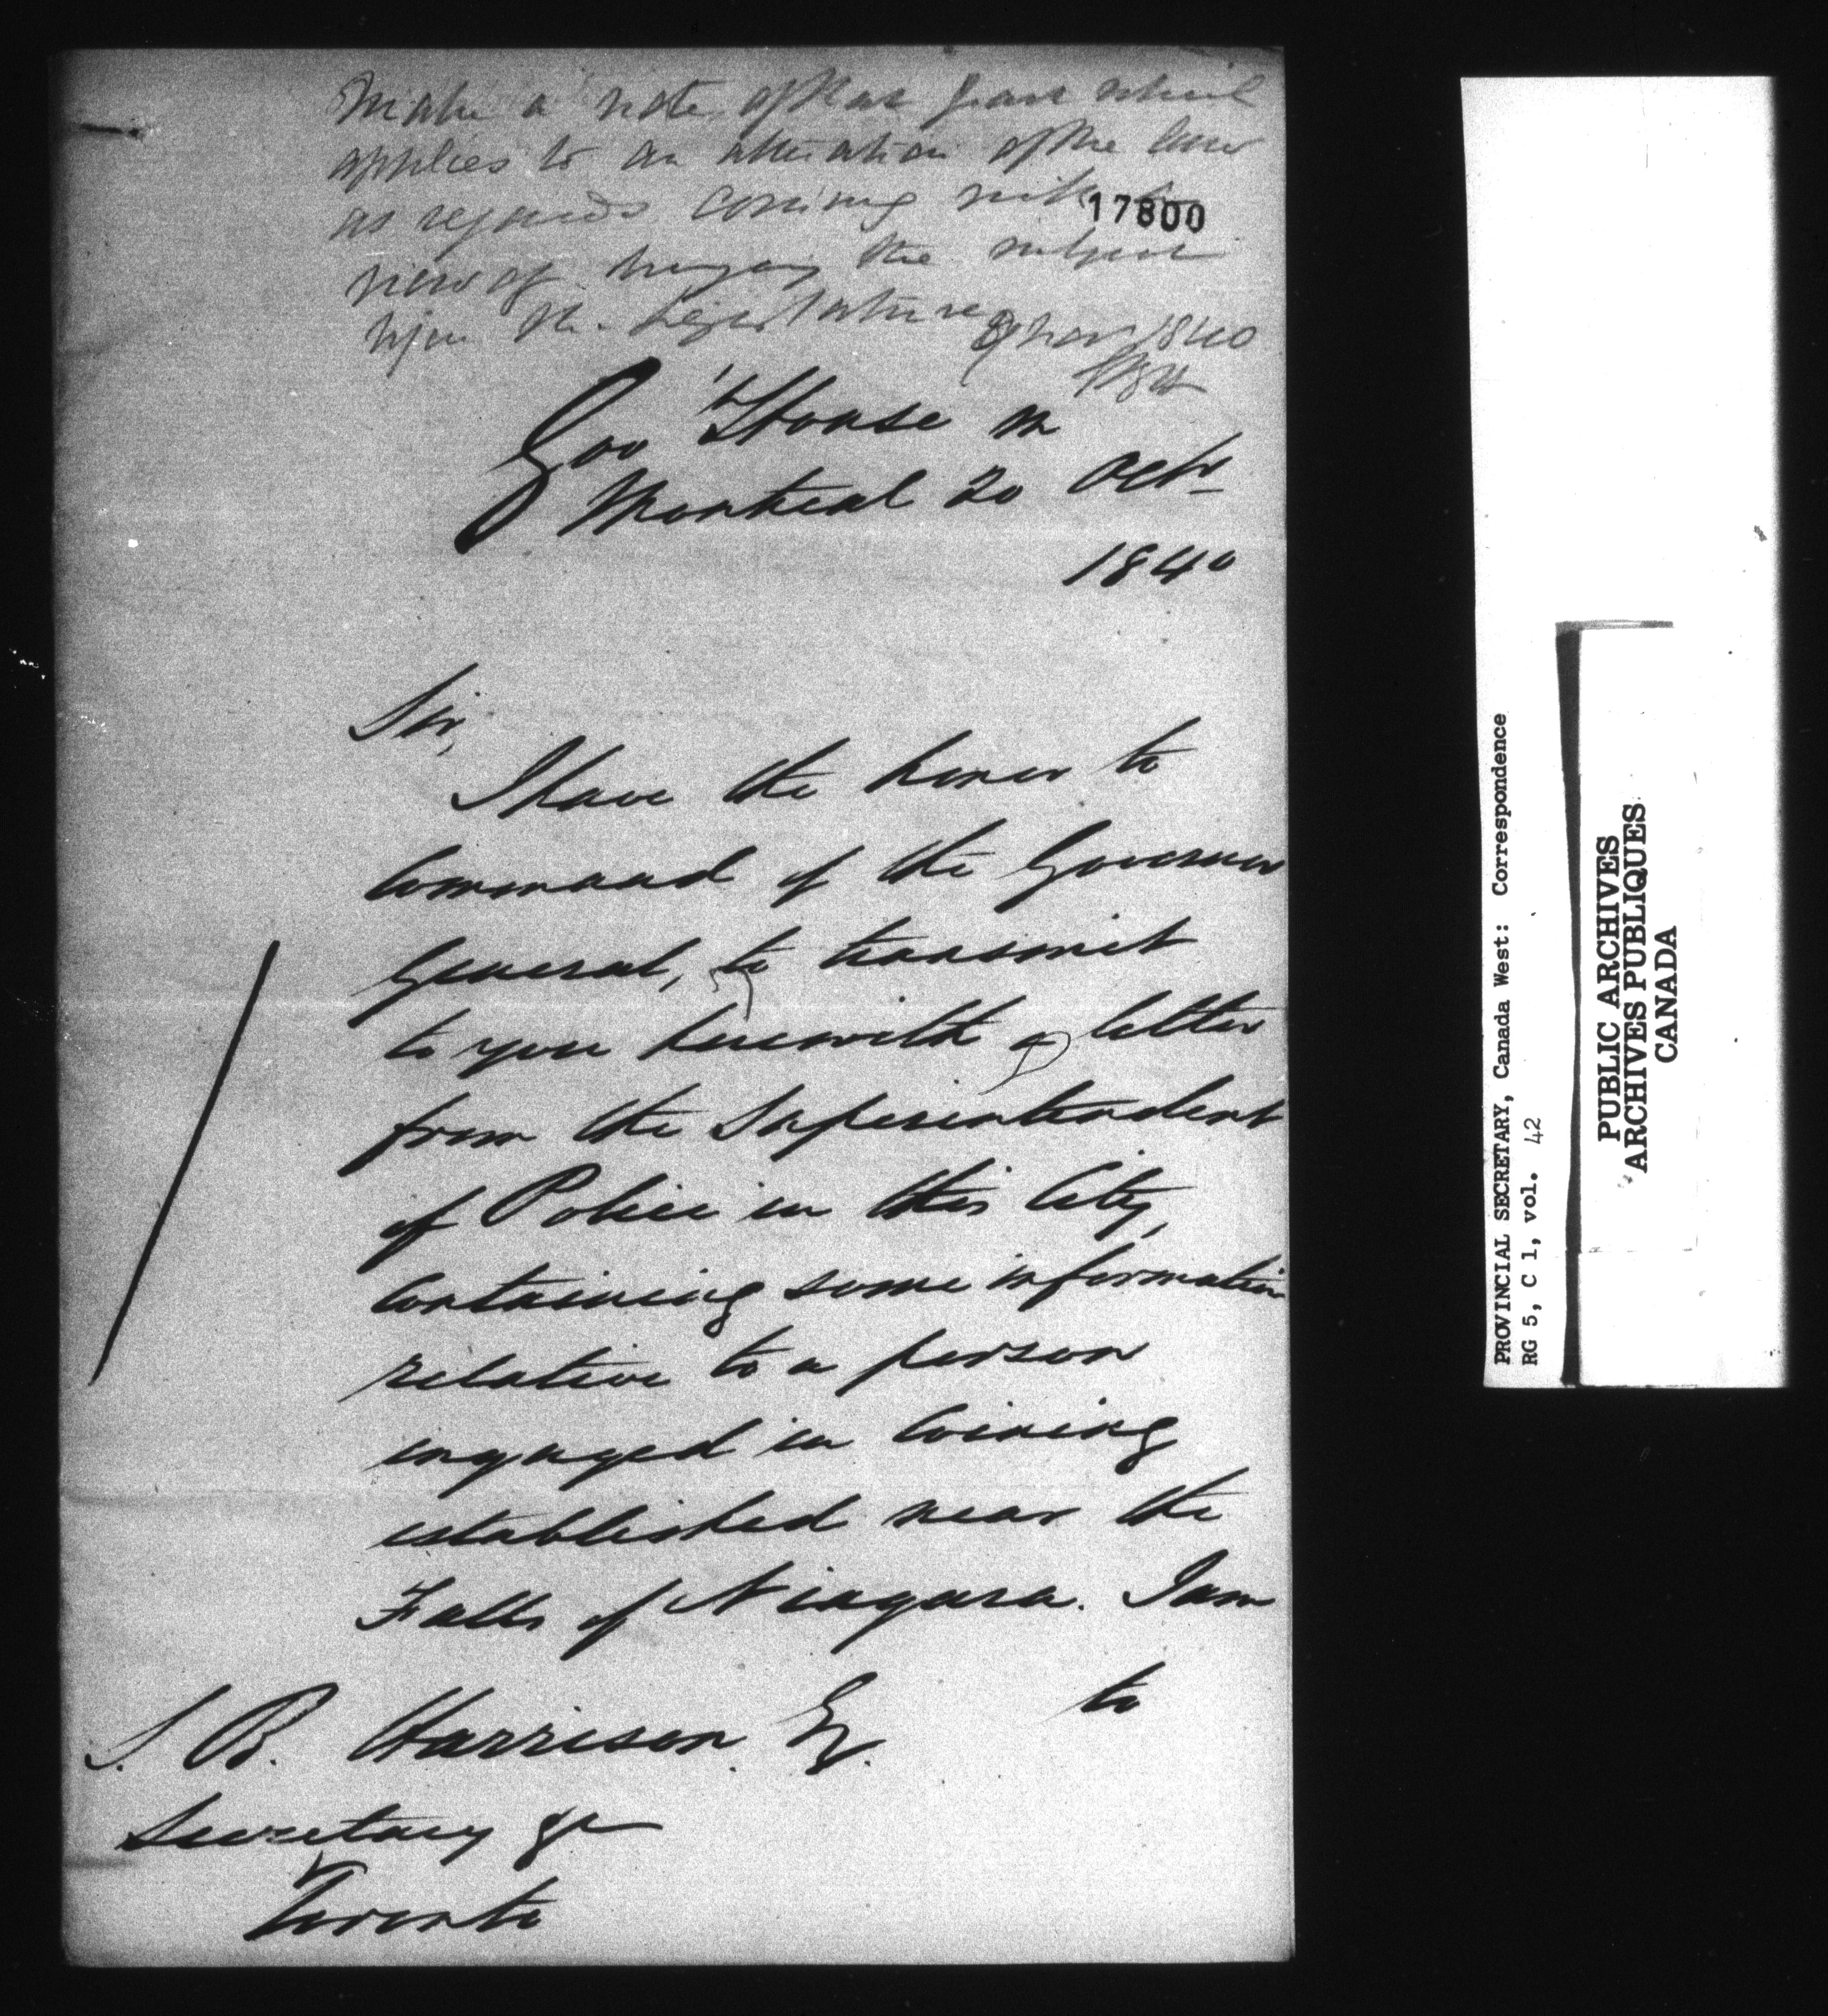 Make a note of that part which
applies to an alteration of the law
as regards coining with
view of bringing the subject
upon the Legislature
9 Nov 1840
17800
Gov't House
Montreal 20 Octr
1840
Sir,
I have the honor to
Command of the Governor
General, to transmit
to you herewith a letter
from the Superintendent
of Police in this City,
Containing some information
relative to a person
engaged in Coining
established near the
Falls of Niagara. I am
to
S. B. Harrison. Esq.
Secretary &c
Toronto
PROVINCIAL SECRETARY, Canada West: Correspondence
RG 5, C 1, vol. 42
PUBLIC ARCHIVES
ARCHIVES PUBLIQUES
CANADA